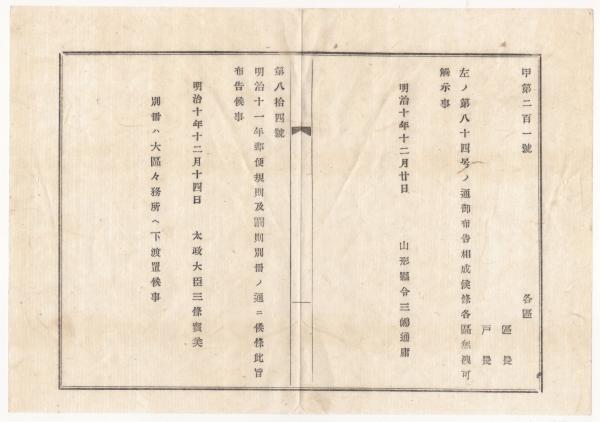 甲第二百一號
各區
區長
戸長
左ノ第八十四号ノ通御布告相成候條各區無洩可
觸示事
明治十年十二月廿日 山形縣令三島通庸
第八拾四號
明治十一年郵便規則及罰則別冊ノ通ニ候條此旨
布告候事
明治十年十二月十四日 太政大臣三條實美
別冊ハ大區々務所ヘ下渡置候事